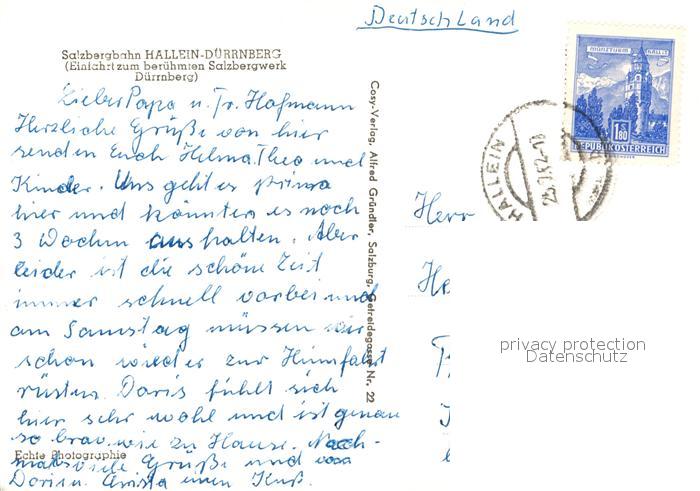 Deutschland
Salzbergbahn HALLEIN-DÜRRNBERG
(Einfahrt zum berühmten Salzbergwerk
Dürrnberg)
Lieber Papa u. Fr. Hofmann
Herzliche Grüße von hier
senden Euch Helma, Theo und
Kinder. Uns geht es prima
hier und könnten es noch
3 Wochen aushalten. Aber
leider ist die schöne Zeit
immer schnell vorbei und
am Samstag müssen wir
schon wieder zur Heimfahrt
rüsten. Doris fühlt sich
hier sehr wohl und ist genau
so brav wie zu Hause. Noch-
mals viele Grüße und von
Doris u. einen Kuß.
Echte Photographie
Cosy-Verlag, Alfred Gründler, Salzburg, Getreidegasse Nr. 22
MÜNZTURM HALL i. T.
1.80
REPUBLIK ÖSTERREICH
HALLEIN
Herr
He
privacy protection
Datenschutz